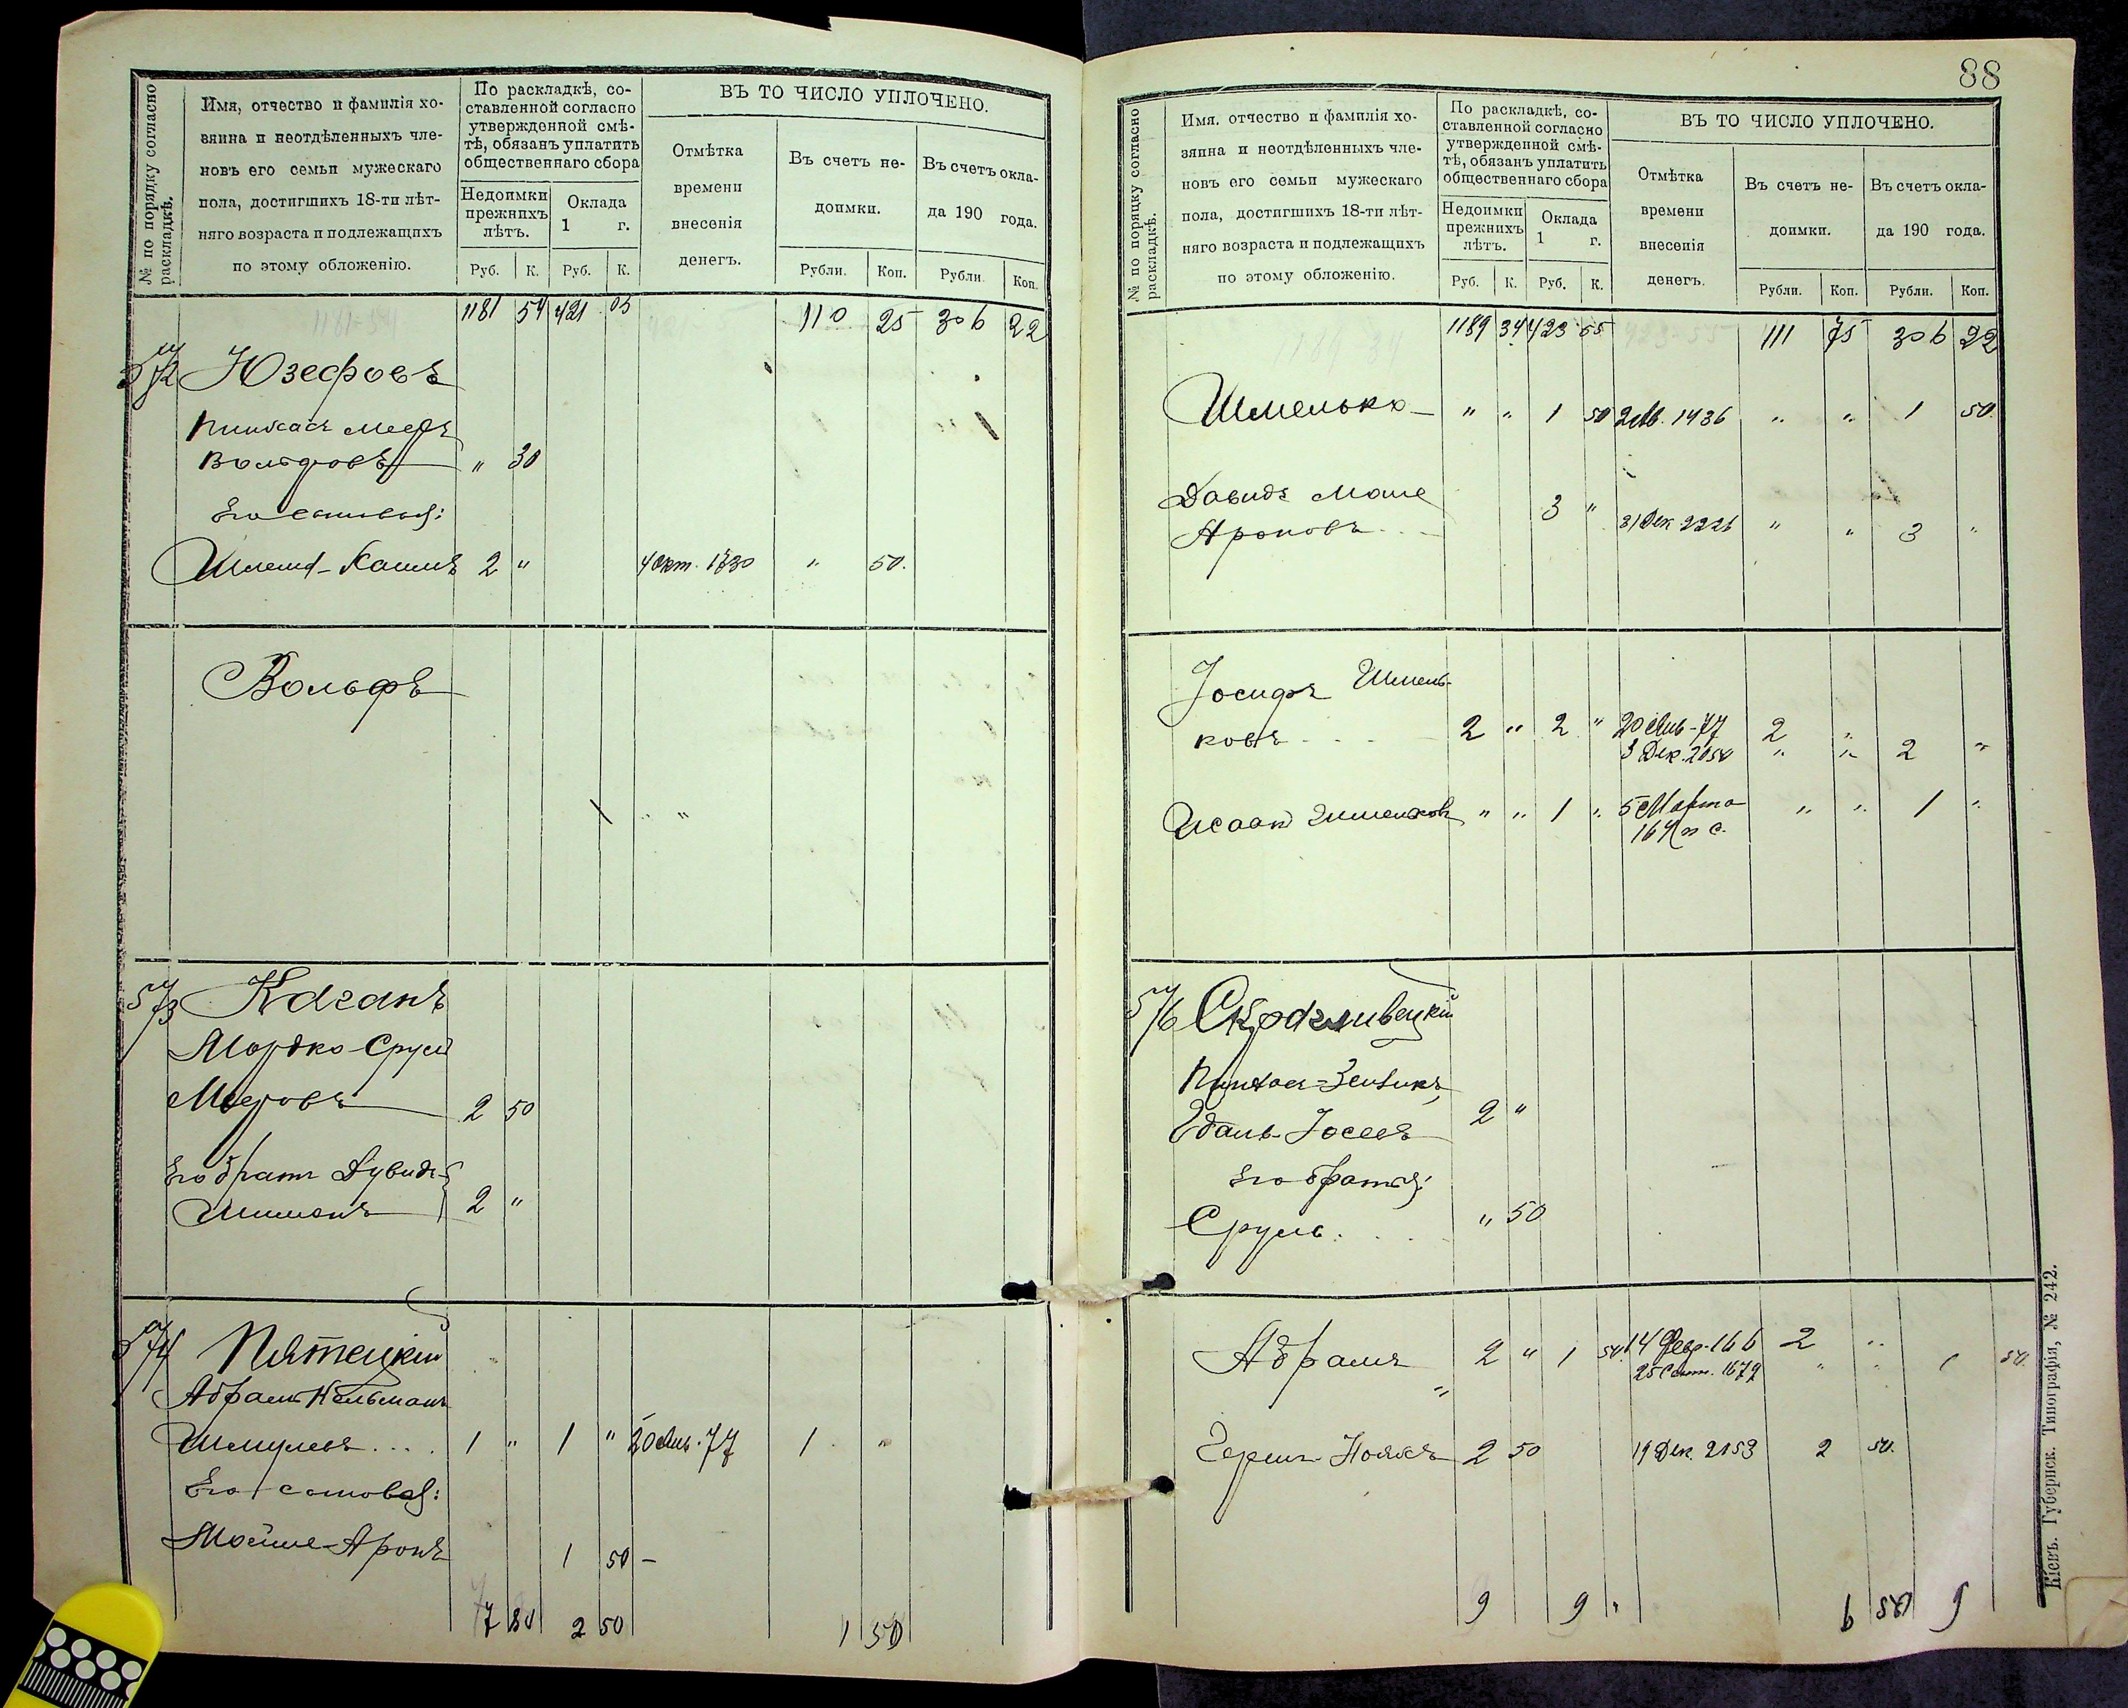 № по порядку согласно раскладкѣ.
Имя, отчество и фамилія хо-
зяина и неотдѣленныхъ чле-
новъ его семьи мужескаго
пола, достигшихъ 18-ти лѣт-
няго возраста и подлежащихъ
по этому обложенію.
По раскладкѣ, со-
ставленной согласно
утвержденной смѣ-
тѣ, обязанъ уплатить
общественнаго сбора
Недоимки
прежнихъ
лѣтъ.
Оклада
1 г.
Руб. К. Руб. К.
ВЪ ТО ЧИСЛО УПЛОЧЕНО.
Отмѣтка
времени
внесенія
денегъ.
Въ счетъ не-
доимки.
Въ счетъ окла-
да 190 года.
Рубли. Коп. Рубли. Коп.
1181 54 421 05 110 25 306 22
572 Юзефовъ
Пинхасъ Меер
Вольфовъ " 30
Его сыновья:
Шлема-Калмн 2 " 4 Окт. 1730 " 50.
Вольфъ
573 Каганъ
Мордко-Сруль
Мееровъ 2 50
Его братъ Дувидъ-
Шимонъ 2 "
574 Пятецкій
Абрамъ Кельманъ
Шмулевъ.... 1 " 1 " 20 Янв. 77 1 "
Его сыновья:
Мойше-Аронъ 1 50 -
7 80 2 50 1 50
88
№ по порядку согласно раскладкѣ.
Имя, отчество и фамилія хо-
зяина и неотдѣленныхъ чле-
новъ его семьи мужескаго
пола, достигшихъ 18-ти лѣт-
няго возраста и подлежащихъ
по этому обложенію.
По раскладкѣ, со-
ставленной согласно
утвержденной смѣ-
тѣ, обязанъ уплатить
общественнаго сбора
Недоимки
прежнихъ
лѣтъ.
Оклада
1 г.
Руб. К. Руб. К.
ВЪ ТО ЧИСЛО УПЛОЧЕНО.
Отмѣтка
времени
внесенія
денегъ.
Въ счетъ не-
доимки.
Въ счетъ окла-
да 190 года.
Рубли. Коп. Рубли. Коп.
1189 34 423 55 111 75 306 22
Шмелько " " 1 50 1436 " " 1 50.
Давидъ Моше
Ароновъ 3 " 31 Дек 2226 " " 3 "
Іосифъ Шмель-
ковъ 2 " 2 " 20 Янв-77 2 "
3 Дек. 2054 " " 2 "
Исаакъ Шмельковъ " " 1 " 5 Марта " " 1 "
576
Пинхас-Зейликъ,
Іосевъ 2 "
Его братья:
Сруль.... " 50
Абрамъ 2 " 1 50. 14 Февр. 166 2 "
25 Сент. 1679 " " 1 50.
Гершъ 2 50 19 Дек. 2153 2 50.
9 9 " 6 50 9
Кіевъ. Губернск. Типографія, № 242.